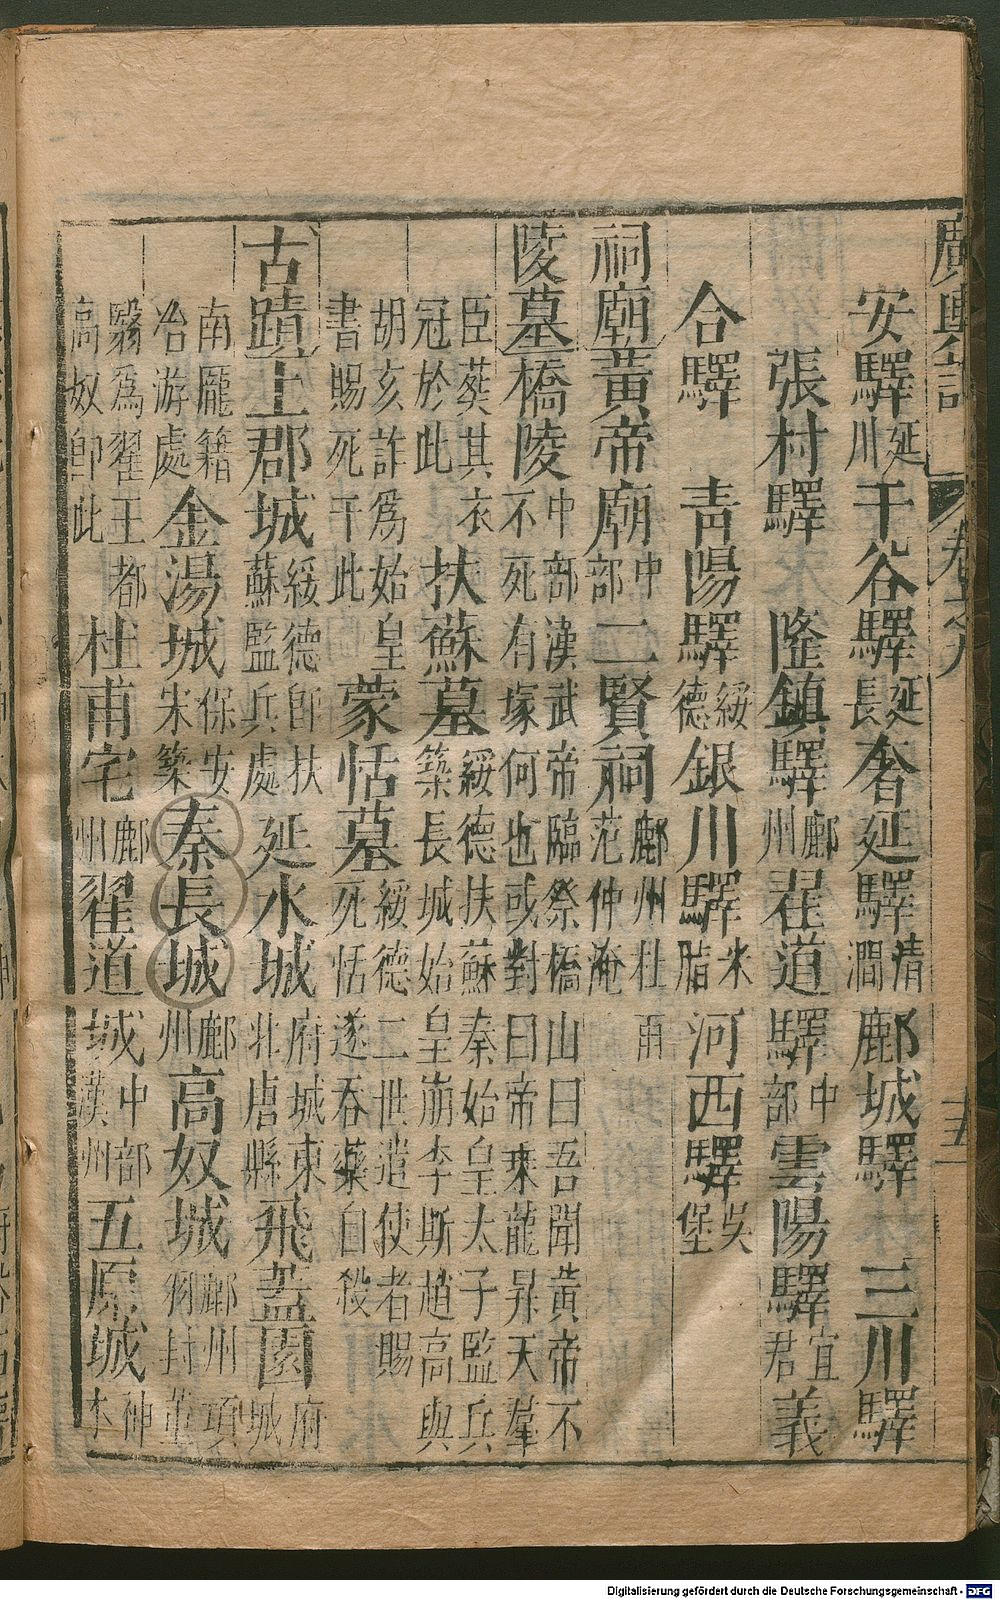 廣輿記 卷之九 十五
安驛延川 干谷驛延長 奢延驛清澗 鄜城驛 三川驛
張村驛 隆鎮驛鄜州 翟道驛中部 雲陽驛宜君 義
合驛 青陽驛綏德 銀川驛米脂 河西驛吳堡
祠廟 黃帝廟中部 二賢祠鄜州杜甫范仲淹
陵墓 橋陵中部漢武帝臨祭橋山曰吾聞黃帝不不死有塚何也或對曰帝乘龍昇天羣
臣葵其衣冠於此 扶蘇墓綏德扶蘇秦始皇太子監兵築長城始皇崩李斯趙高與
胡亥詐爲始皇書賜死于此 蒙恬墓綏德二世遣使者賜死恬遂吞藥自殺
古蹟 上郡城綏德卽扶蘇監兵處 延水城府城東北唐縣 飛蓋園府城
南龐籍冶游處 金湯城保安宋築 秦長城鄜州 高奴城鄜州項羽封董
翳爲翟王都高奴卽此 杜甫宅鄜州 翟道城中部漢州 五原城神木
Digitalisierung gefördert durch die Deutsche Forschungsgemeinschaft - DFG